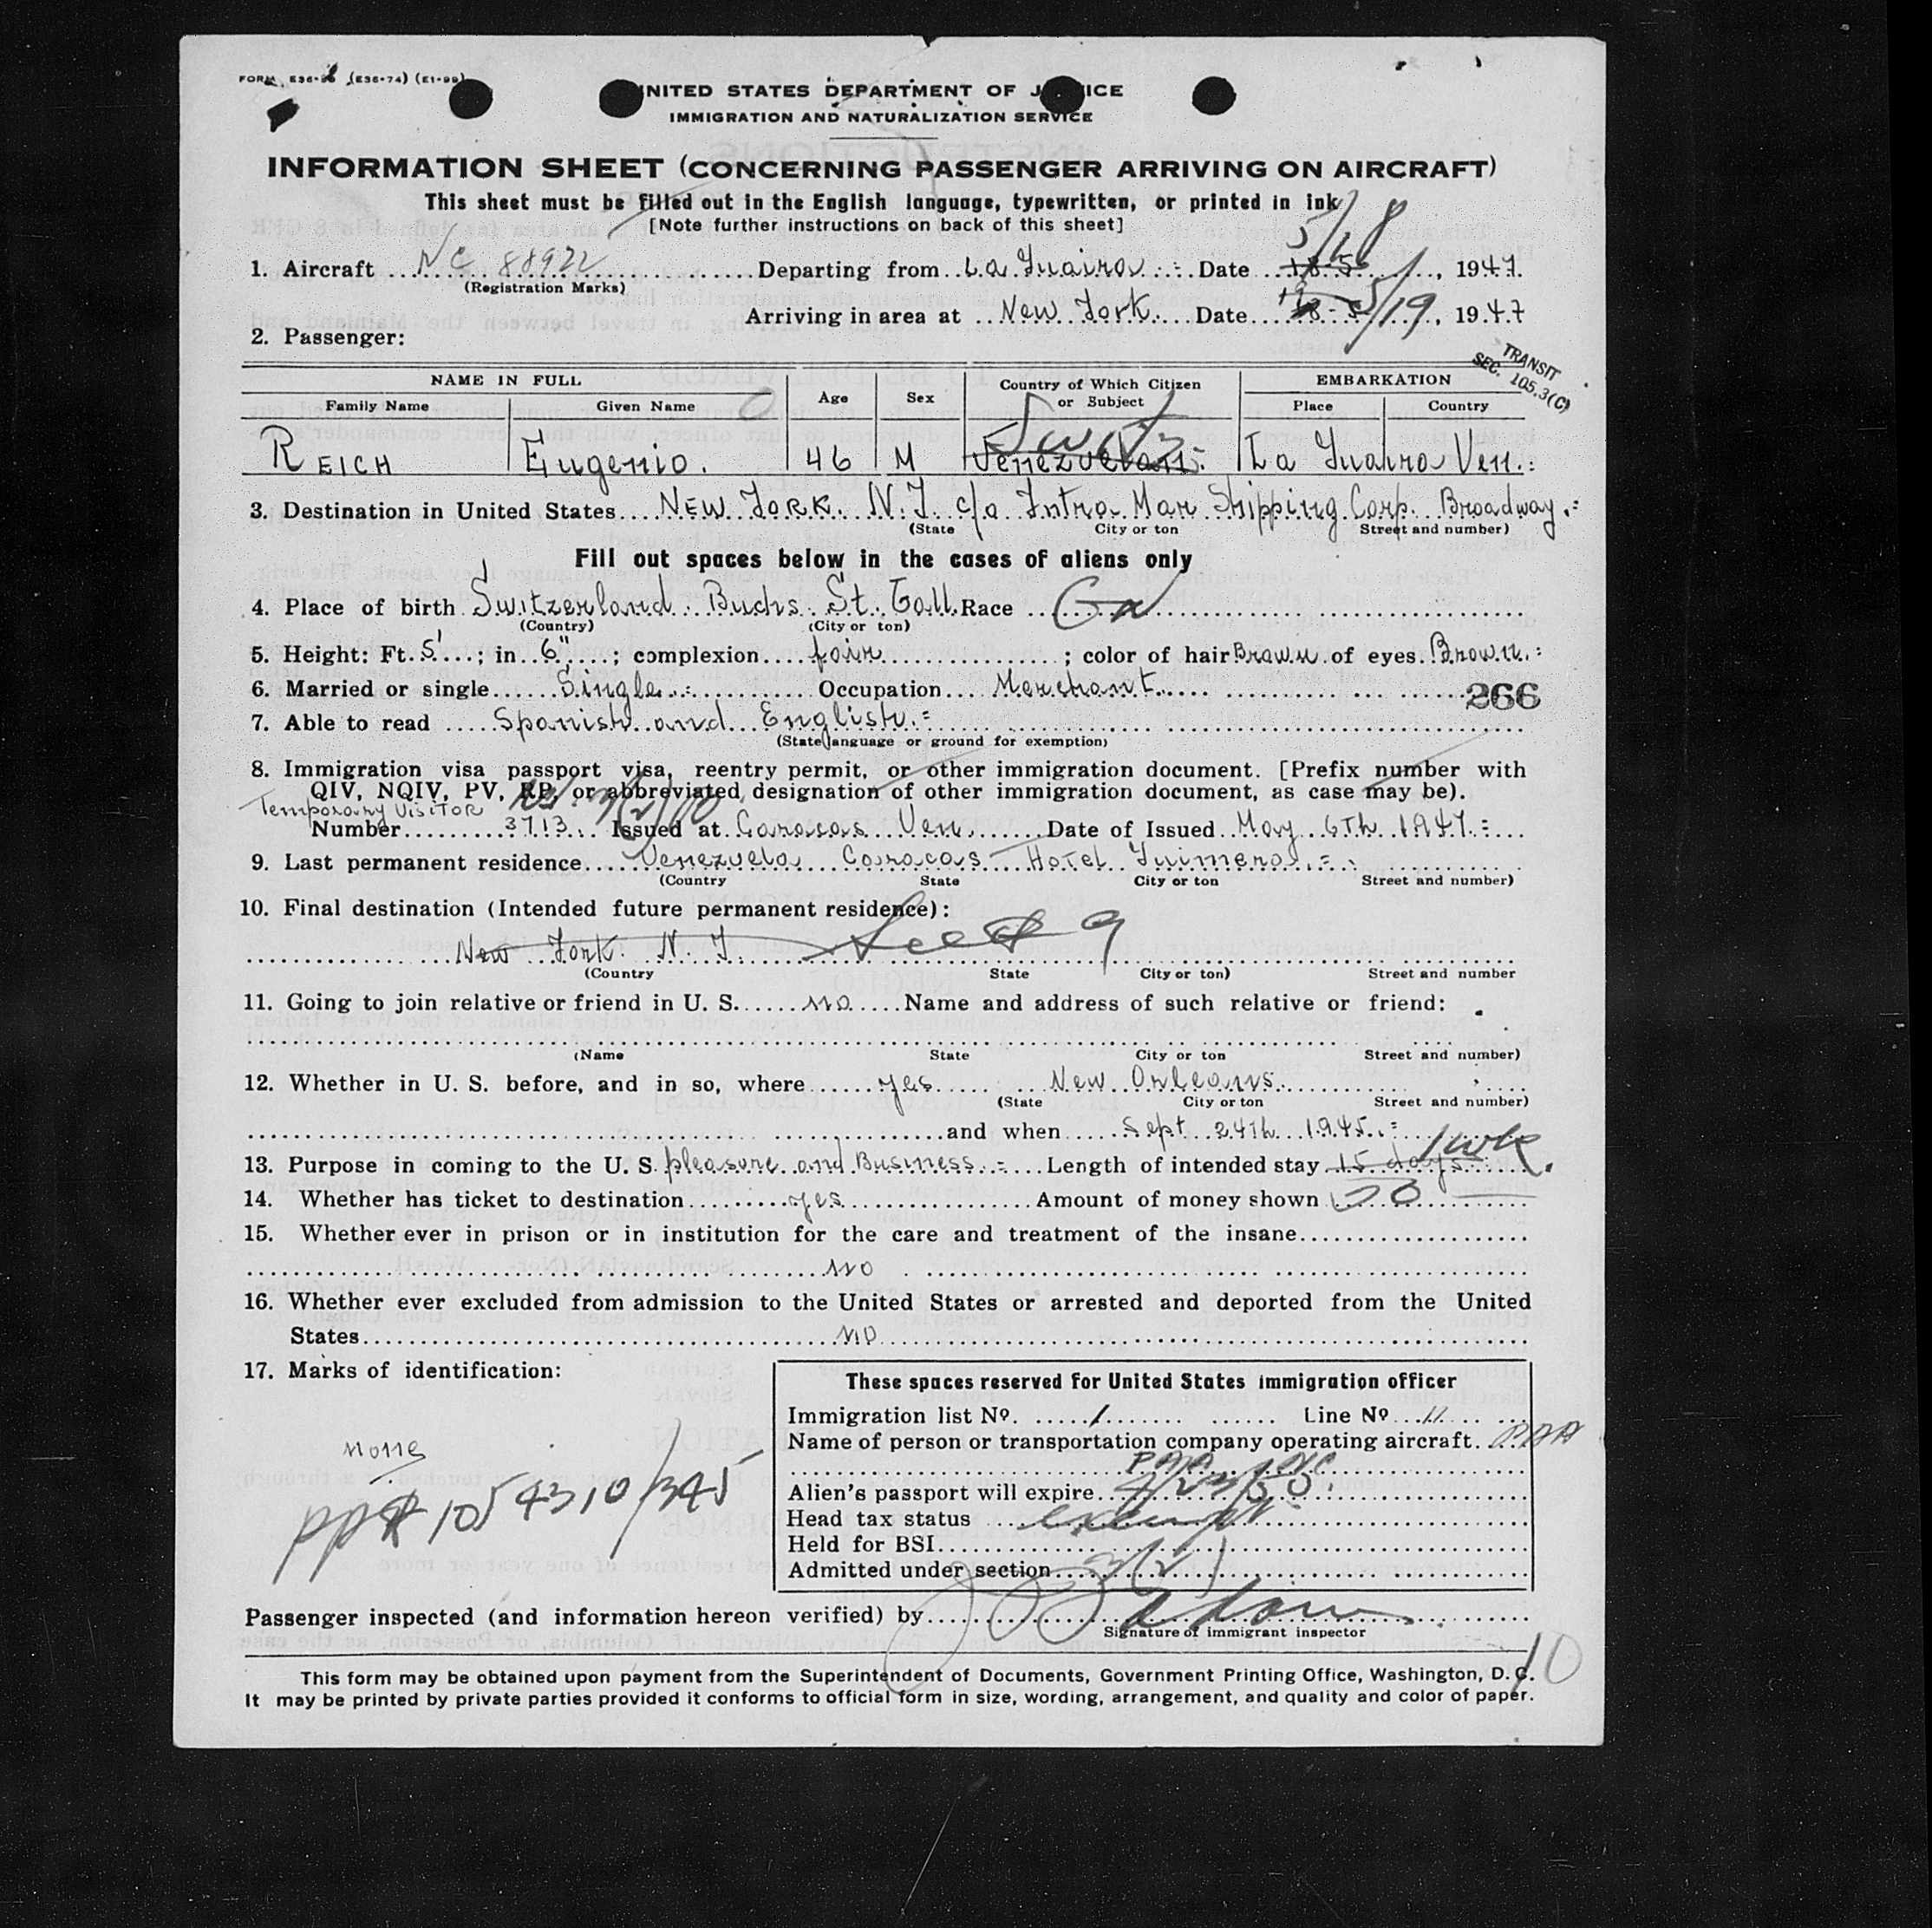 FORM E36-  (E36-74) (E1-99)
UNITED STATES DEPARTMENT OF JUSTICE
IMMIGRATION AND NATURALIZATION SERVICE
INFORMATION SHEET (CONCERNING PASSENGER ARRIVING ON AIRCRAFT)
This sheet must be filled out in the English language, typewritten, or printed in ink
[Note further instructions on back of this sheet]
5/18
1. Aircraft NC 88922 Departing from La Guaira Date 18-5, 1947.
(Registration Marks)
Arriving in area at New York Date 5/19, 1947
2. Passenger:
TRANSIT
SEC. 105.3(C)
NAME IN FULL Age Sex Country of Which Citizen or Subject EMBARKATION
Family Name Given Name Place Country
Swiss
REICH Eugenio. 46 M Venezuelan La Guaira Ven.
3. Destination in United States NEW YORK. N.Y. c/o Intra Mar Shipping Corp. Broadway
(State City or ton Street and number)
Fill out spaces below in the cases of aliens only
4. Place of birth Switzerland Buchs St. Gall. Race
(Country) (City or ton)
5. Height: Ft. 5'; in 6"; complexion fair; color of hair Brown of eyes Brown.
6. Married or single Single Occupation Merchant
266
7. Able to read Spanish and English.
(State language or ground for exemption)
8. Immigration visa passport visa, reentry permit, or other immigration document. [Prefix number with
QIV, NQIV, PV, RP, or abbreviated designation of other immigration document, as case may be).
Temporary Visitor
Number 3713 Issued at Caracas Ven. Date of Issued May 6Th 1947
9. Last permanent residence Venezuela Caracas Hotel
(Country State City or ton Street and number)
10. Final destination (Intended future permanent residence):
New York. N.Y. See # 9
(Country State City or ton) Street and number
11. Going to join relative or friend in U. S. no Name and address of such relative or friend:
(Name State City or ton Street and number)
12. Whether in U. S. before, and in so, where yes New Orleans
(State City or ton Street and number)
and when Sept 24th 1945
1 wk
13. Purpose in coming to the U. S. pleasure and Business Length of intended stay 15 days
14. Whether has ticket to destination yes Amount of money shown
15. Whether ever in prison or in institution for the care and treatment of the insane
NO
16. Whether ever excluded from admission to the United States or arrested and deported from the United
States NO
17. Marks of identification:
none
pp# 1054310/345
These spaces reserved for United States immigration officer
Immigration list No. 1 Line No 11
Name of person or transportation company operating aircraft. PAA
PAA INC
Alien's passport will expire 4/23/50
Head tax status exempt
Held for BSI
Admitted under section 3(2)
Passenger inspected (and information hereon verified) by
Signature of immigrant inspector
10
This form may be obtained upon payment from the Superintendent of Documents, Government Printing Office, Washington, D. C.
It may be printed by private parties provided it conforms to official form in size, wording, arrangement, and quality and color of paper.